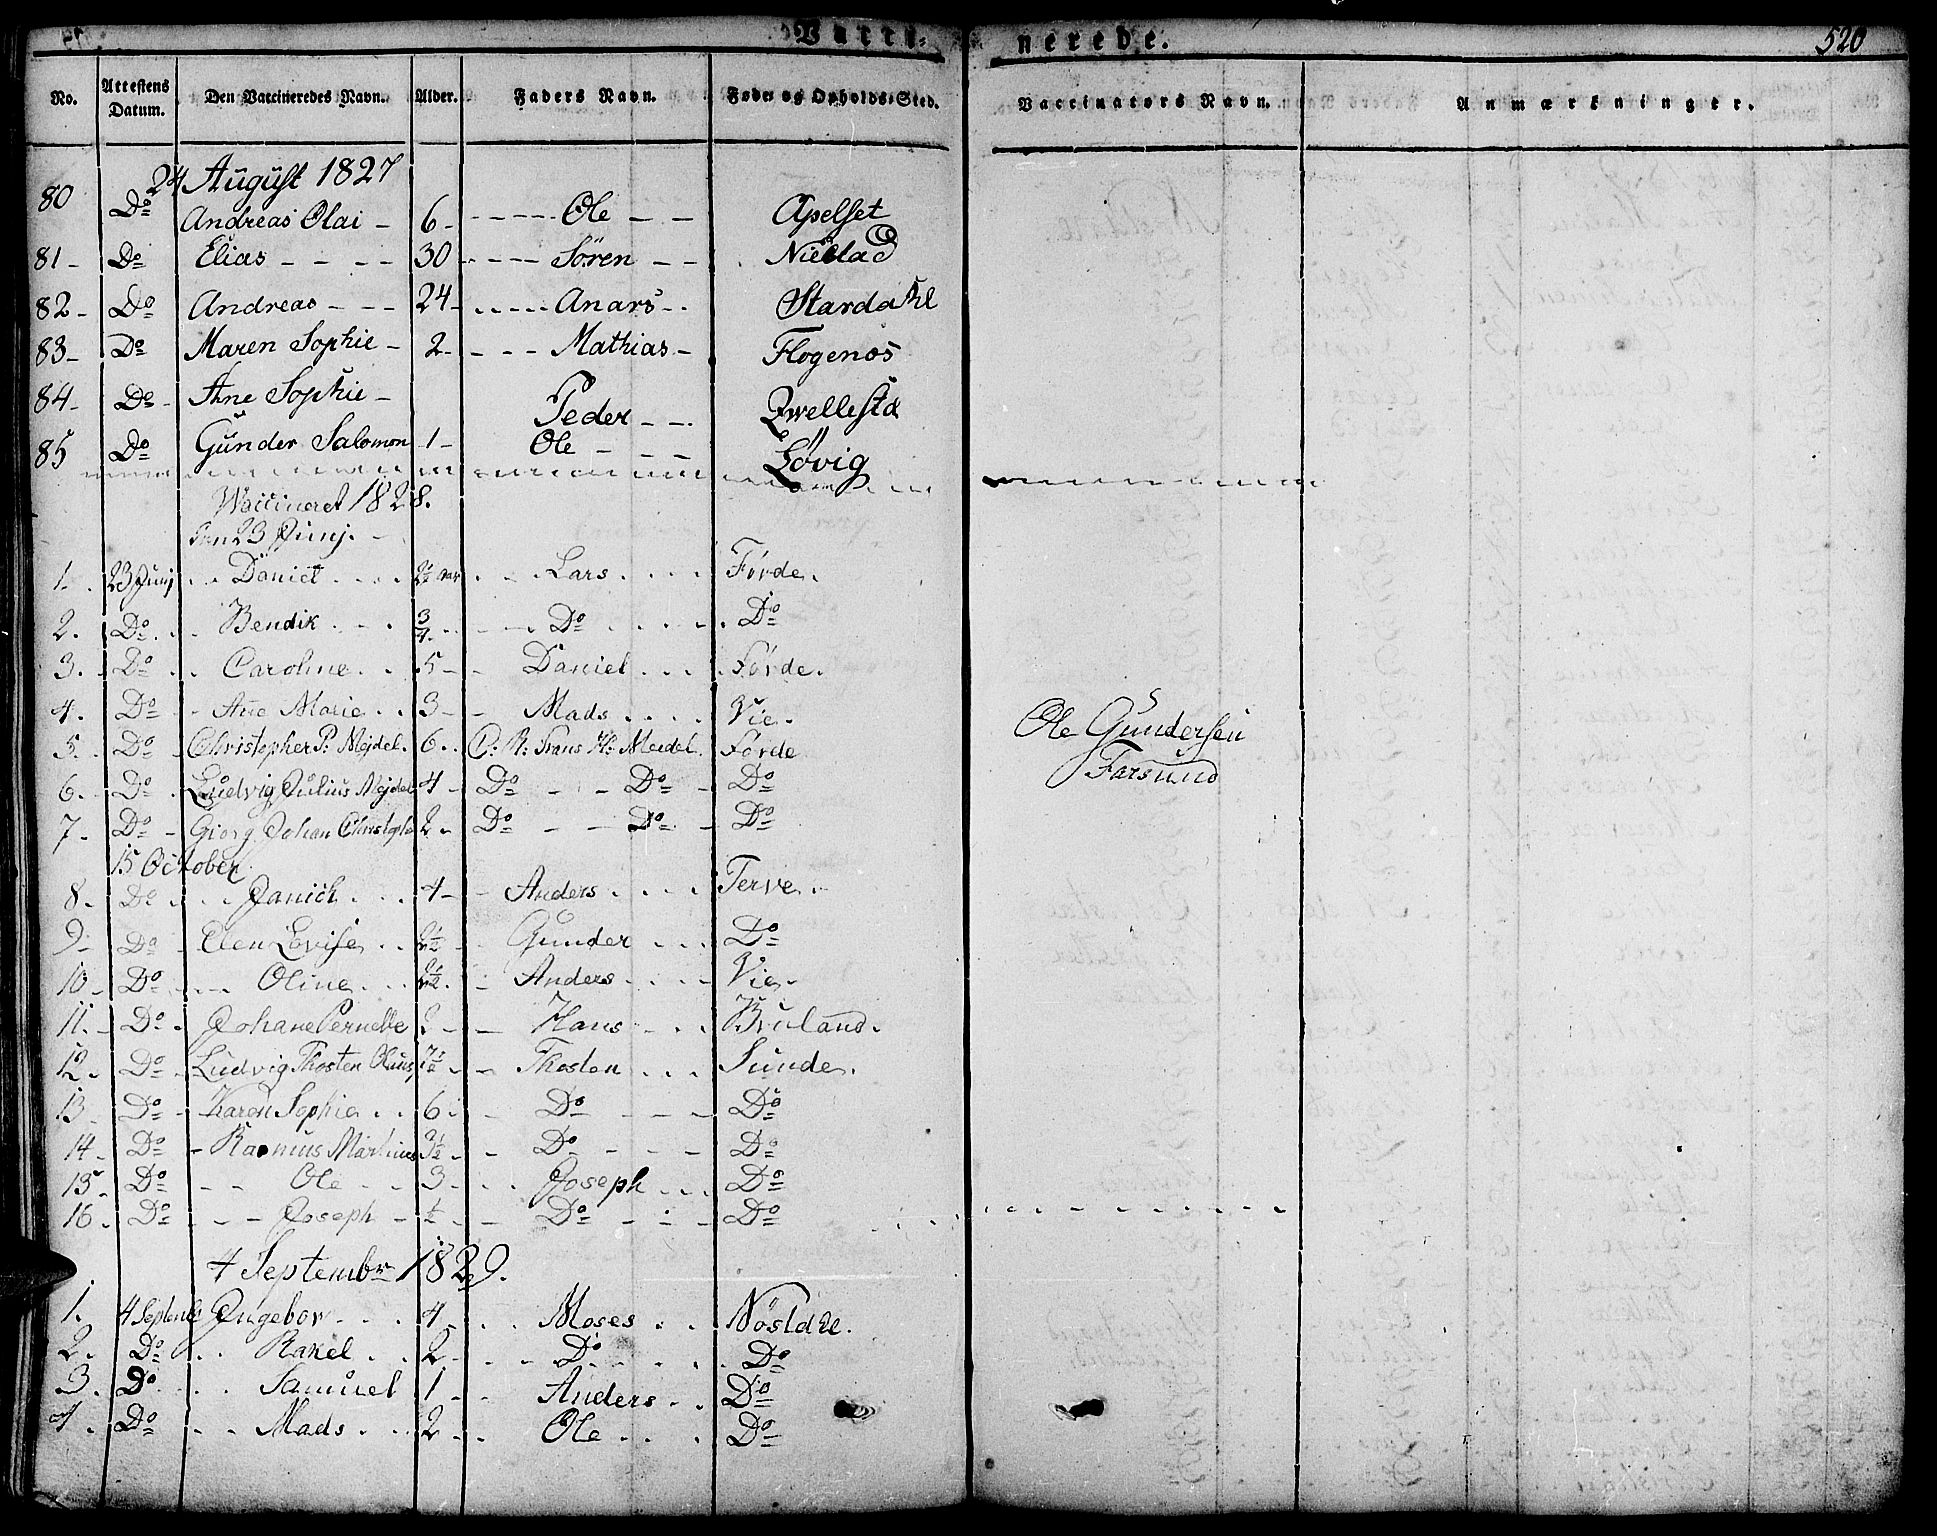 Vacci-
nerede.
520
No. Attestens Datum. Den Vaccineredes Navn. Alder. Faders Navn. Føde og Opholds-Sted. Vaccinators Navn. Anmærkninger.
24 August 1827
80 Do Andreas Olai - 6 - - - - - Ole - - Apelset
81 - Do Elias - - - - 30 - - - - Sören - -
82 - Do Andreas - - - 24 - . . . . . Anars - . Stardahl
83 - Do Maren Sophie - 2 - - - - Mathias - Flogenes
84 - Do - Ane Sophie - Peder - -
85 Do Gunder Salomon 1 - Ole - - - Løvig
Vaccineret 1828.
Den 23 Junj. -
1. 23 Junj . . Daniel . . . . 2½ aar . . - Lars . . . . Førde.
2. Do . . . Bendik . - . ¾ . . - . - . Do . . . . . Do
3. Do . . Caroline . . 5 - - Daniel . . . . Førde.
4. Do - Ane Marie . . 3 - - Mads . . . . Vie.
5. Do - Christopher P: Mejdel. 6 . . Frans H: Meidel. Førde
6. Do . Ludvig Julius Mejdel 4 - Do - - Do - Do
7. Do - Giorg Johan Christoph 2 - Do - - Do - Do
15 October
8. Do . . . Janich . . . 4 - - Anders . . . . Terve.
9. Do - Elen Lovise . . 2½ - - Gunder . . . Do
10. Do . . . Oline . . . 2½ - - Anders . . . . Vie.
11. - Do . Johane Pernelle - - Hans - . . Bruland.
12. Do - Ludvig Thosten Olaus - - Thosten . . . Sunde.
13 Do - Karen Sophie . . 6 . - Do - - - Do
14. Do - Rasmus Martinus 3½ . - Do - - - Do
15. Do - - Ole . . 3 . . . Joseph . . . Do
16. Do - - - Joseph - ½ - - Do - - - Do
Ole Gundersen
Farsund
4 Septembr 1829.
1. 4 Septembr Ingebor . . . 4 . . . Moses . . Nösldhl.
2. Do . . Rakel . . 2 . . . . Do . . . . Do
3. Do . . Samuel 1 . . Anders . . Do
4. Do . . Mads . . . 2 . . Ole . . . Do